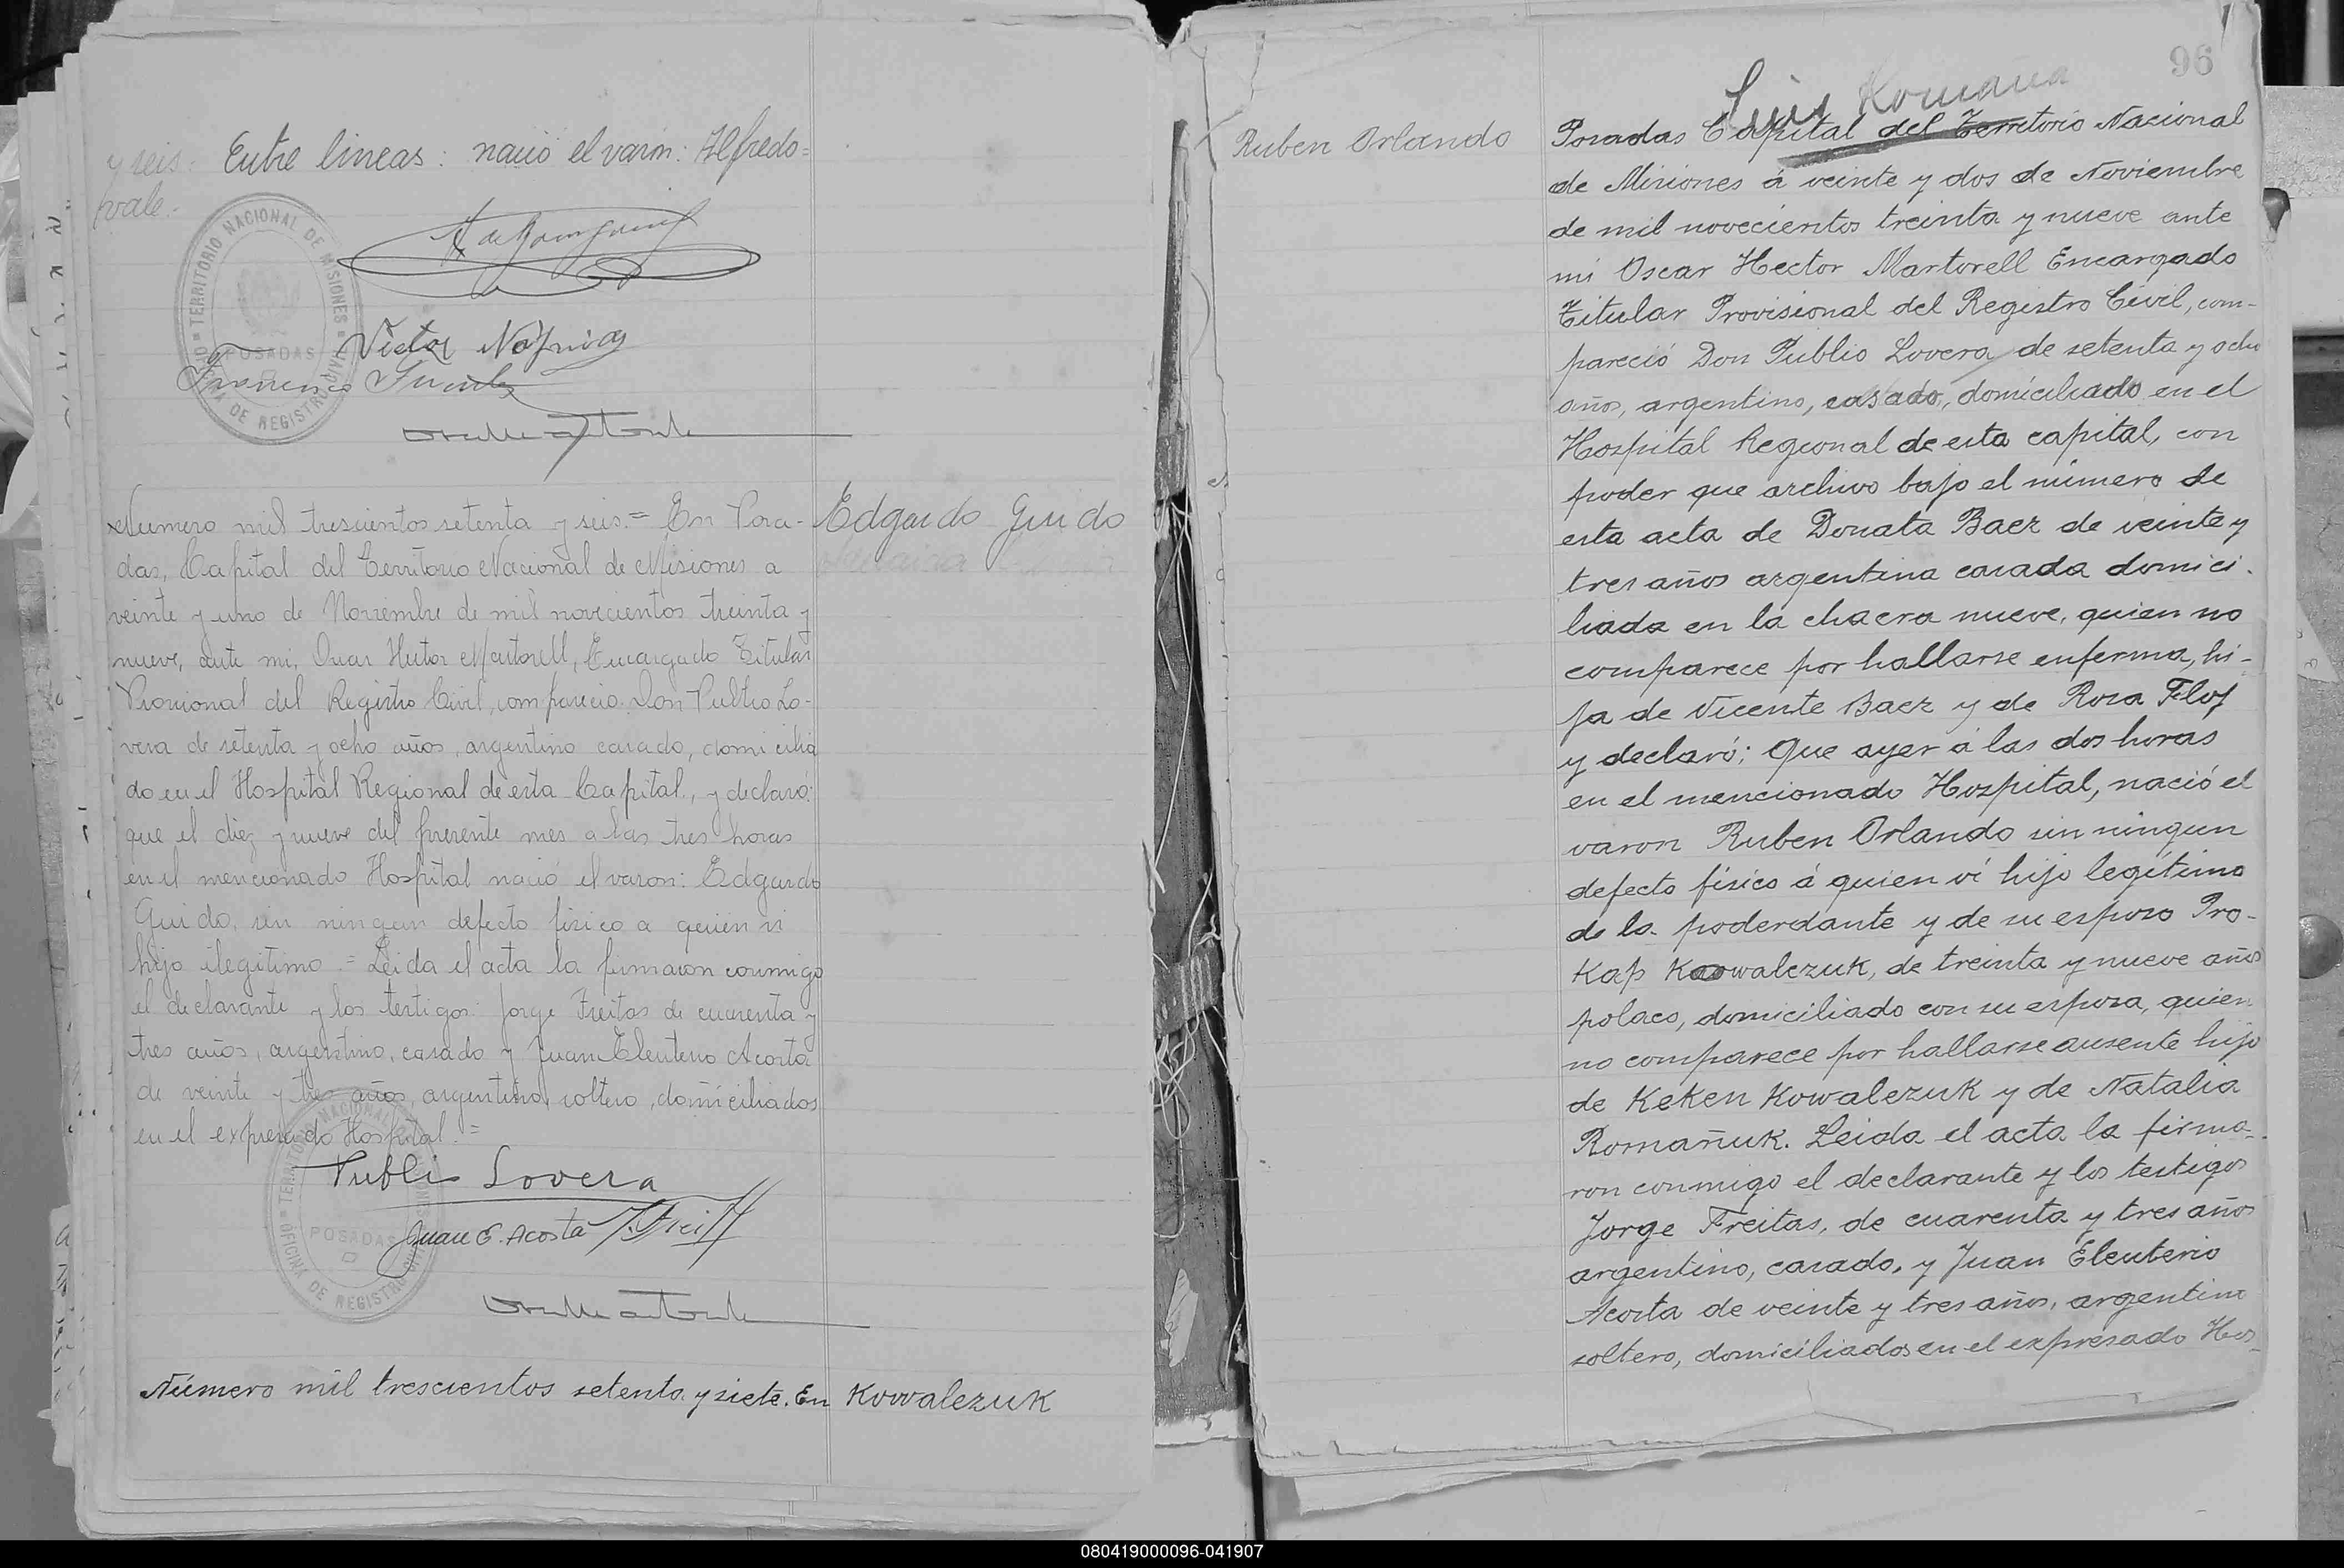 y seis. Entre lineas: nació el varón: Alfredo=
vale.-
TERRITORIO NACIONAL DE MISIONES
POSADAS
OFICINA DE REGISTRO CIVIL
Victor
Francisco
Numero mil trescientos setenta y seis.= En Posa-
Edgardo Guido
das, Capital del Territorio Nacional de Misiones a
veinte y uno de Noviembre de mil novecientos treinta y
nueve, ante mi, Oscar Hector Martorell, Encargado Titular
Provicional del Registro Civil, comparecio Don Publio Lo-
vera de setenta y ocho años, argentino casado, domicilia
do en el Hospital Regional de esta Capital, y declaró:
que el diez y nueve del presente mes a las tres horas
en el mencionado Hospital nació el varon: Edgardo
Guido, sin ningun defecto fisico a quien vi
hijo ilegitimo.= Leida el acta la firmaron conmigo
el declarante y los testigos: Jorge Freitas de cuarenta y
tres años, argentino, casado y Juan Eleuterio Acosta
de veinte y tres años, argentino, soltero, domiciliados
en el expresado Hospital.=
Publio Lovera
Juan E. Acosta J. Freitas
TERRITORIO NACIONAL DE MISIONES
POSADAS
OFICINA DE REGISTRO CIVIL
Número mil trescientos setenta y siete. En
Kowalezuk
96
Luis Romana
Ruben Orlando
Posadas Capital del Territorio Nacional
de Misiones á veinte y dos de Noviembre
de mil novecientos treinta y nueve ante
mi Oscar Hector Martorell Encargado
Titular Provisional del Registro Civil, com-
pareció Don Publio Lovera de setenta y ocho
años, argentino, casado, domiciliado en el
Hospital Regional de esta capital, con
poder que archivo bajo el número de
esta acta de Donata Baez de veinte y
tres años argentina casada domici-
liada en la chacra nueve, quien no
comparece por hallarse enferma, hi-
ja de Vicente Baez y de Rosa Flof
y declaró; Que ayer á las dos horas
en el mencionado Hospital, nació el
varon Ruben Orlando sin ningun
defecto físico á quien ví hijo legítimo
de la poderdante y de su esposo Pro-
kap Kowalezuk, de treinta y nueve años
polaco, domiciliado con su esposa, quien
no comparece por hallarse ausente hijo
de Keken Kowalezuk y de Natalia
Romañuk. Leida el acta la firma-
ron conmigo el declarante y los testigos
Jorge Freitas, de cuarenta y tres años
argentino, casado, y Juan Eleuterio
Acosta de veinte y tres años, argentino
soltero, domiciliados en el expresado Hos-
080419000096-041907